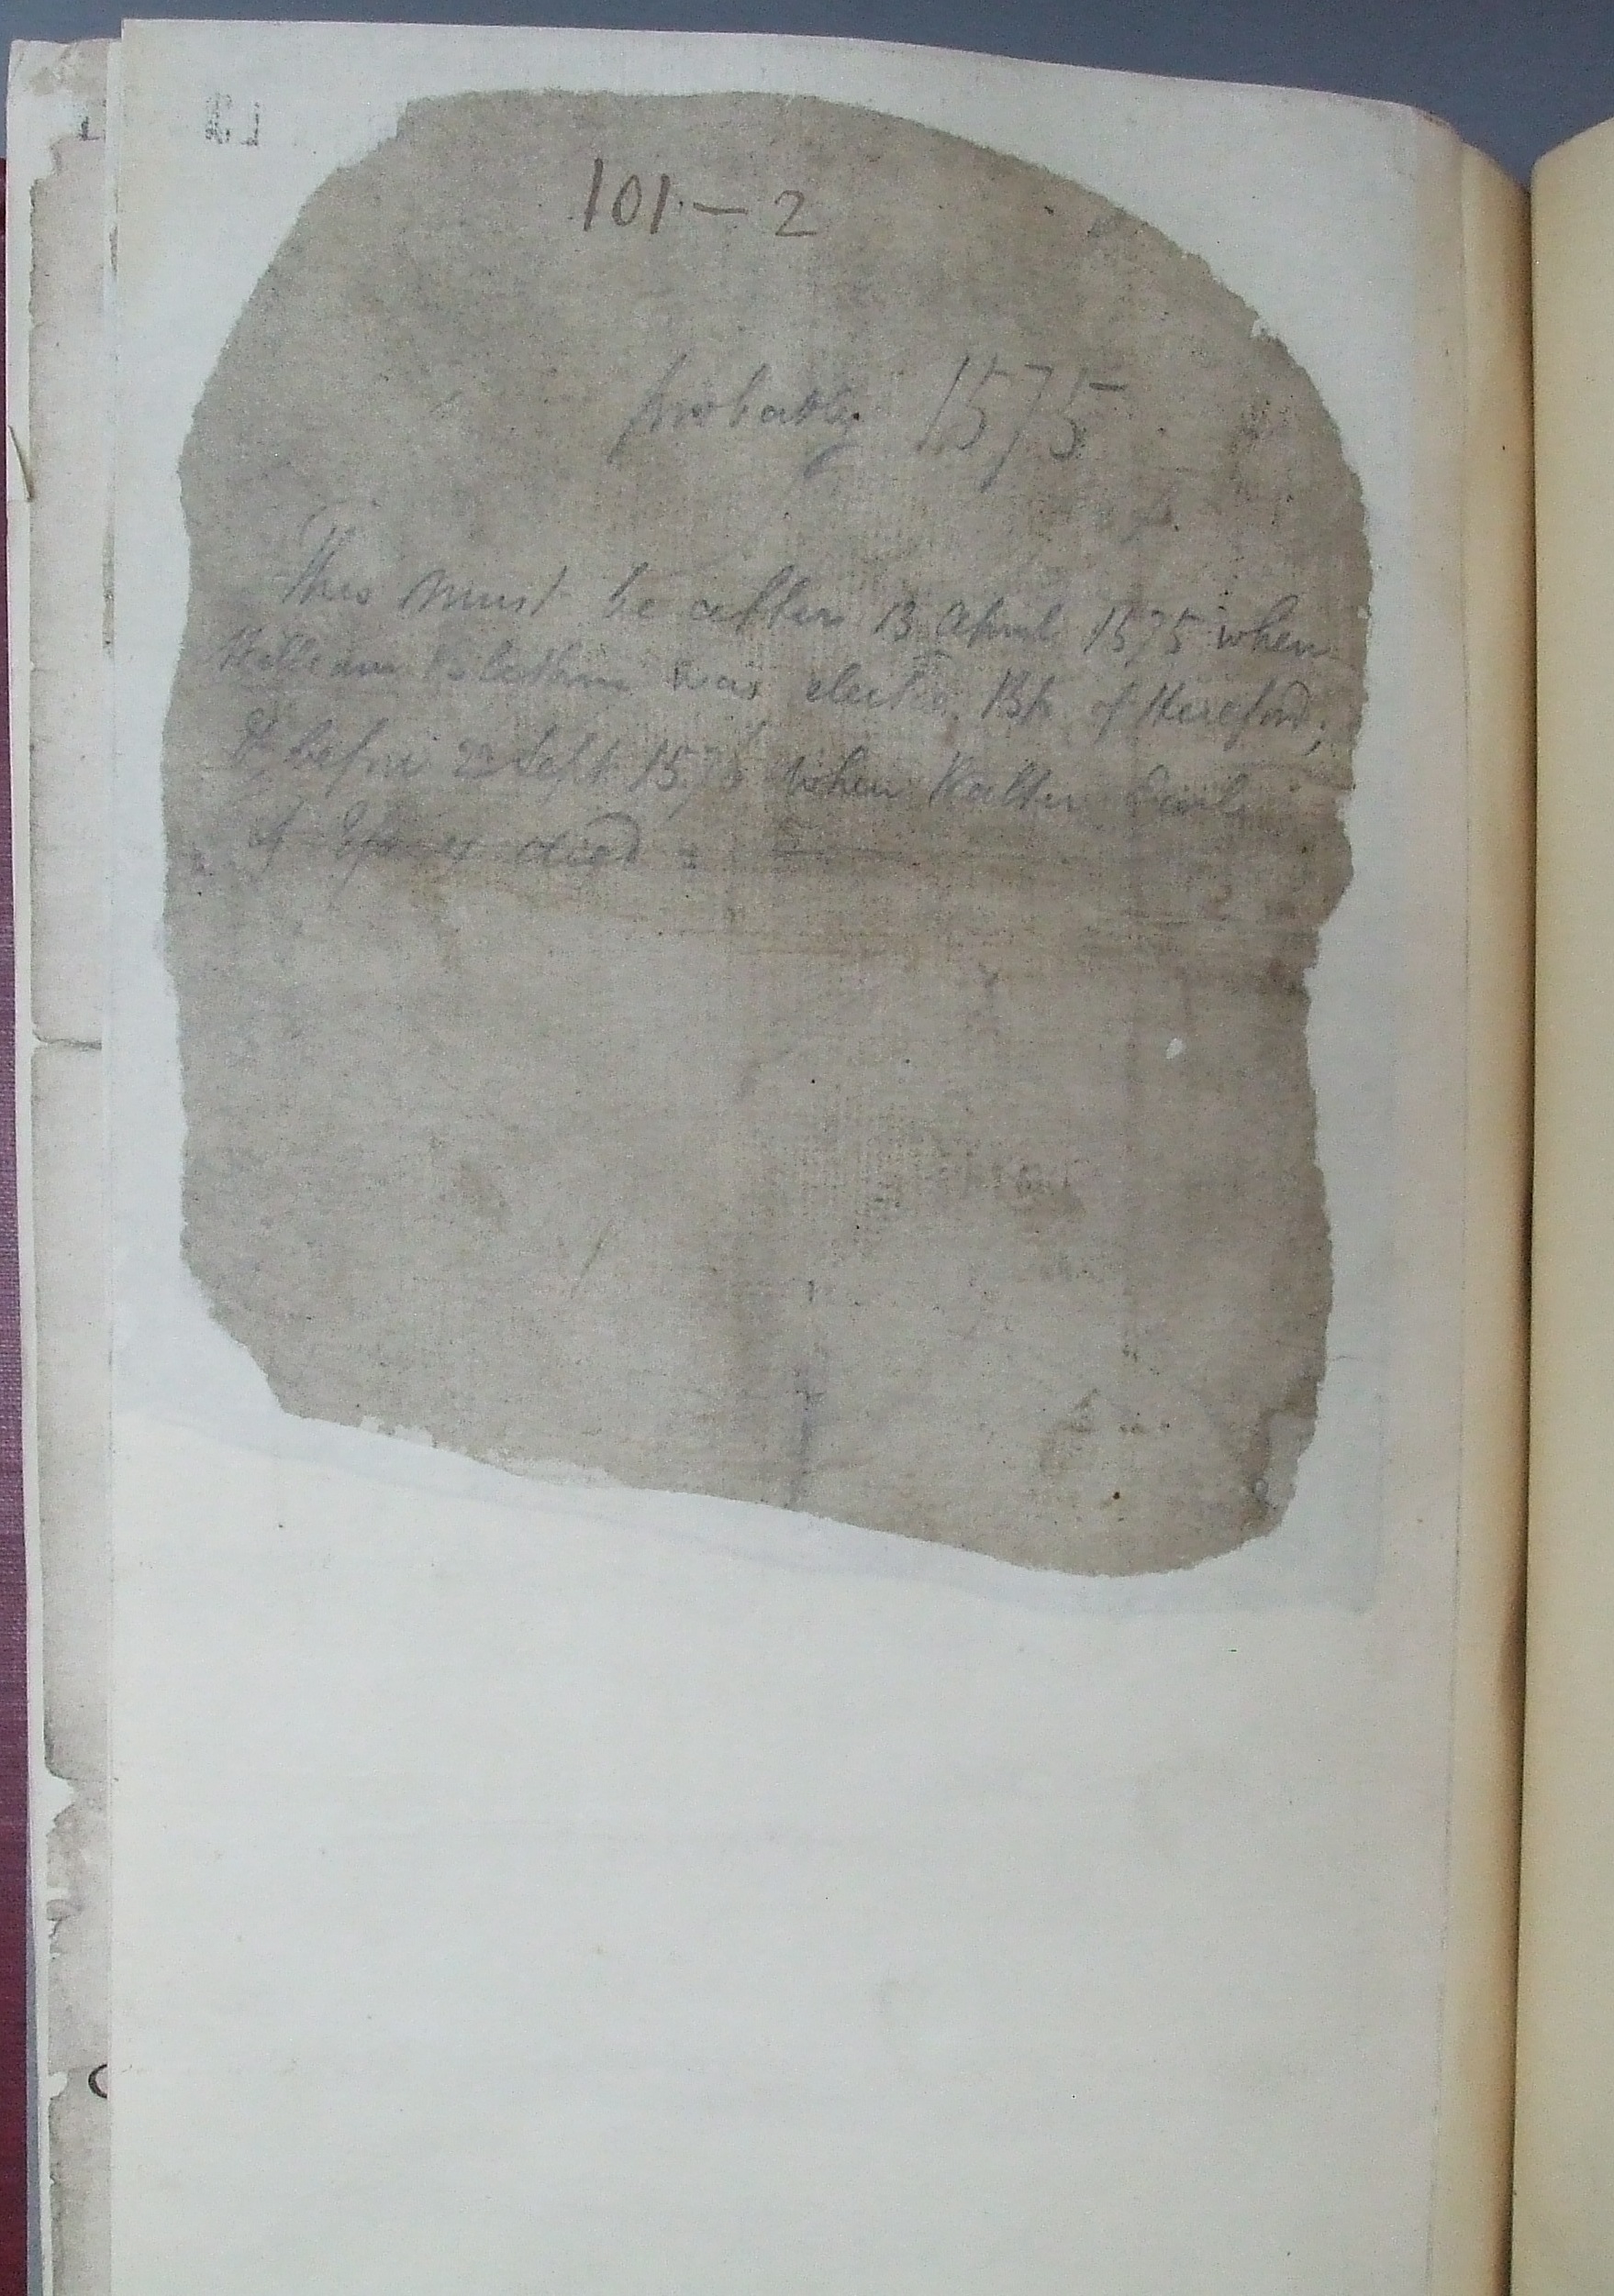 101 - 2
probably 1575
This must be after 13 April 1575 when
William Blethin was elected Bp of Hereford;
& before 22 Sept 1576 when Walter Earl
of Essex died =